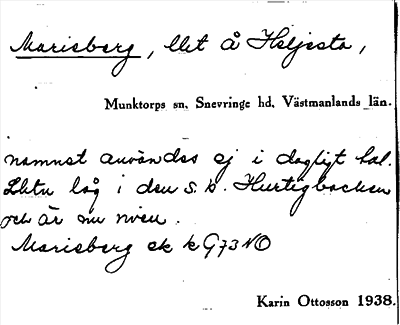 Marieberg, Llet å Heljesta,
Munktorps sn. Snevringe hd. Västmanlands län.
namnet användes ej i dagligt tal.
Lhtn låg i den s.k. Hurtigbacken
och är nu riven.
Marieberg ek k G73 NO
Karin Ottosson 1938.